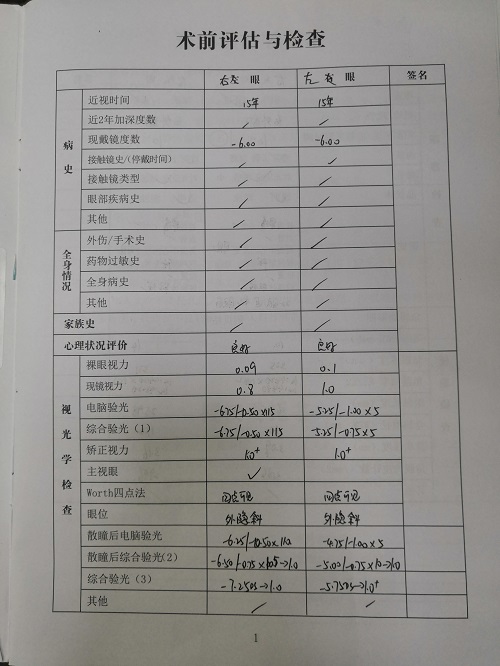 术前评估与检查
右 眼 左 眼 签名
病史
近视时间 15年 15年
近2年加深度数 / /
现戴镜度数 -6.00 -6.00
接触镜史/(停戴时间) / /
接触镜类型 / /
眼部疾病史 / /
其他 / /
全身情况
外伤/手术史 / /
药物过敏史 / /
全身病史 / /
其他 / /
家族史 / /
心理状况评价 良好 良好
视光学检查
裸眼视力 0.09 0.1
现镜视力 0.8 1.0
电脑验光 -6.75/-0.50×115 -5.25/-1.00×5
综合验光(1) -6.75/-0.50×115 -5.25/-0.75×5
矫正视力 1.0⁺ 1.0⁺
主视眼 ✓
Worth四点法 四点可见 四点可见
眼位 外隐斜 外隐斜
散瞳后电脑验光 -6.25/-0.50×110 -4.75/-1.00×5
散瞳后综合验光(2) -6.50/-0.75×105→1.0 -5.00/-0.75×10→1.0
综合验光(3) -7.25DS→1.0 -5.75DS→1.0⁺
其他 / /
1